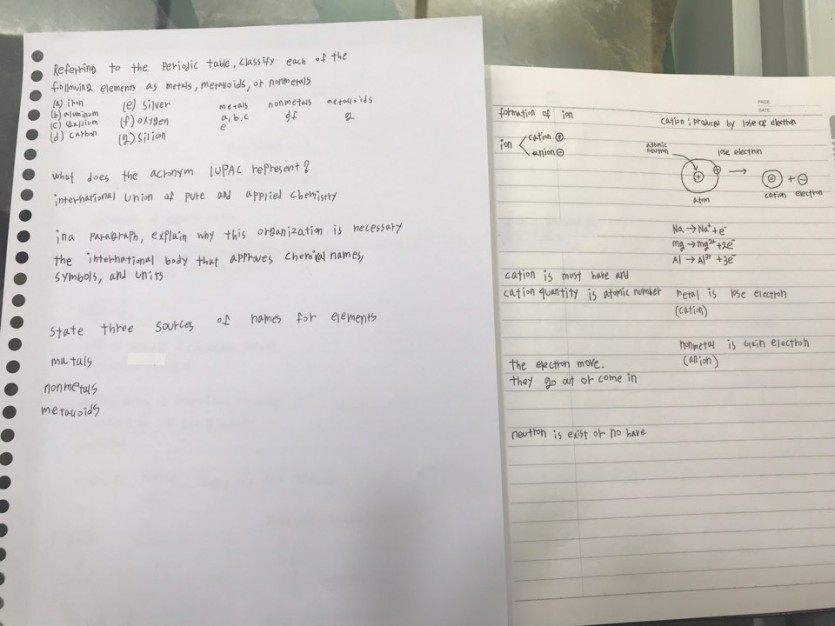 Referring to the Periodic table, classify each of the
following elements as metals, metalloids, or nonmetals
(a) iron (e) silver metals nonmetals metalloids
(b) aluminum (f) oxygen a, b, c df g
(c) Gallium (g) Silion e
(d) carbon
what does the acronym IUPAC represent?
international union of pure and applied chemistry
in a paragraph, explain why this organization is necessary
the international body that approves chemical names,
symbols, and units
state three sources of names for elements
matals
nonmetals
metalloids
formation of ion
cation : produced by lose of electron
ion cation ⊕
anion ⊖
atomic neutron
lose electron
→ + ⊖
atom cation electron
Na → Na⁺ + e⁻
mg → mg²⁺ + 2e⁻
Al → Al³⁺ + 3e⁻
cation is must have and
cation quantity is atomic number metal is lose electron
(cation)
nonmetal is Gain electron
(anion)
the electron move.
they go out or come in
neutron is exist or no have